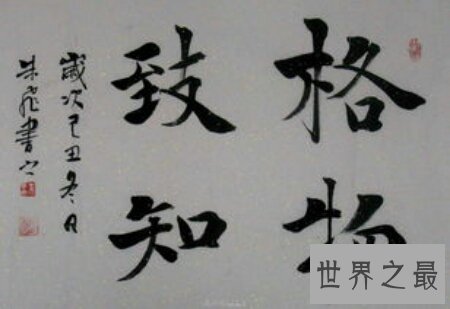 格物
致知
歲次己丑冬日
朱飛書
世界之最